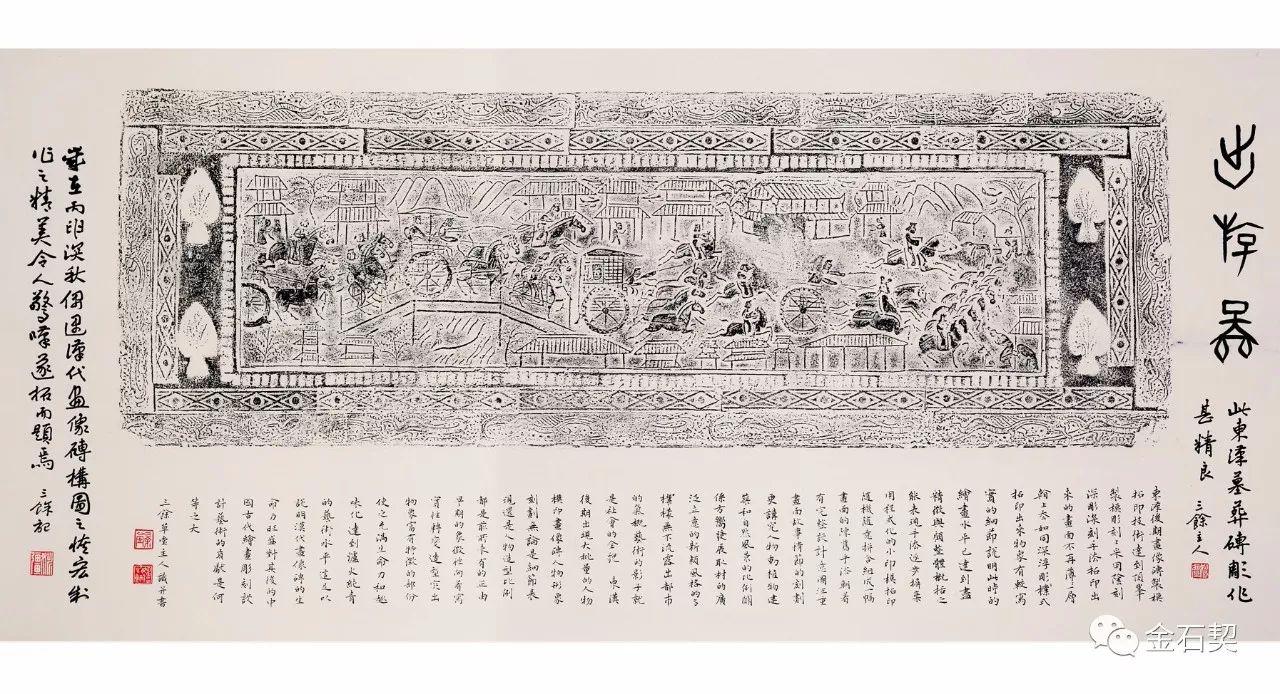 此東漢墓葬磚彫作
甚精良 三餘主人
東漢後期畫像磚製模
拓印技術達到頂峯
製模彫刻采用陰刻
深彫深刻手漆拓印出
來的畫面不再薄了厚
如同深浮彫標式
拓印出來物象有較寫
實的細節說明此時的
繪畫水平已達到盡
精微與頗整體概括之
能表現手漆逐步摒棄
用程式化的小印模拓印
隨機隨意拼合組成一幅
畫面的陳舊手漆朝着
有完整設計意圖注重
畫面故事情節的刻劃
更講究人物動植物建
築和自然風景的比例關
係方嚮發展取材的廣
泛立意的新穎風格的多
樣無不流露出都市
的氣概藝術的影子就
是社會的全記 東漢
後期出現大批量的人物
模印畫像磚人物形象
刻劃無論是細節表
現還是人物造型比例
都是前所未有的正由
早期的象徵性向着寫
實性轉變造型突出
物象富有特徵的部份
使之充滿生命力和趣
味化達到爐火純青
的藝術水平這足以
說明漢代畫像磚的生
命力旺盛對其後的中
國古代繪畫彫刻設
計藝術的貢獻是何
等之大
三餘草堂主人識并書
歲在丙申深秋偶遇漢代畫像磚構圖之恢宏製
作之精美令人驚嘆遂拓而題焉 三餘記
金石契